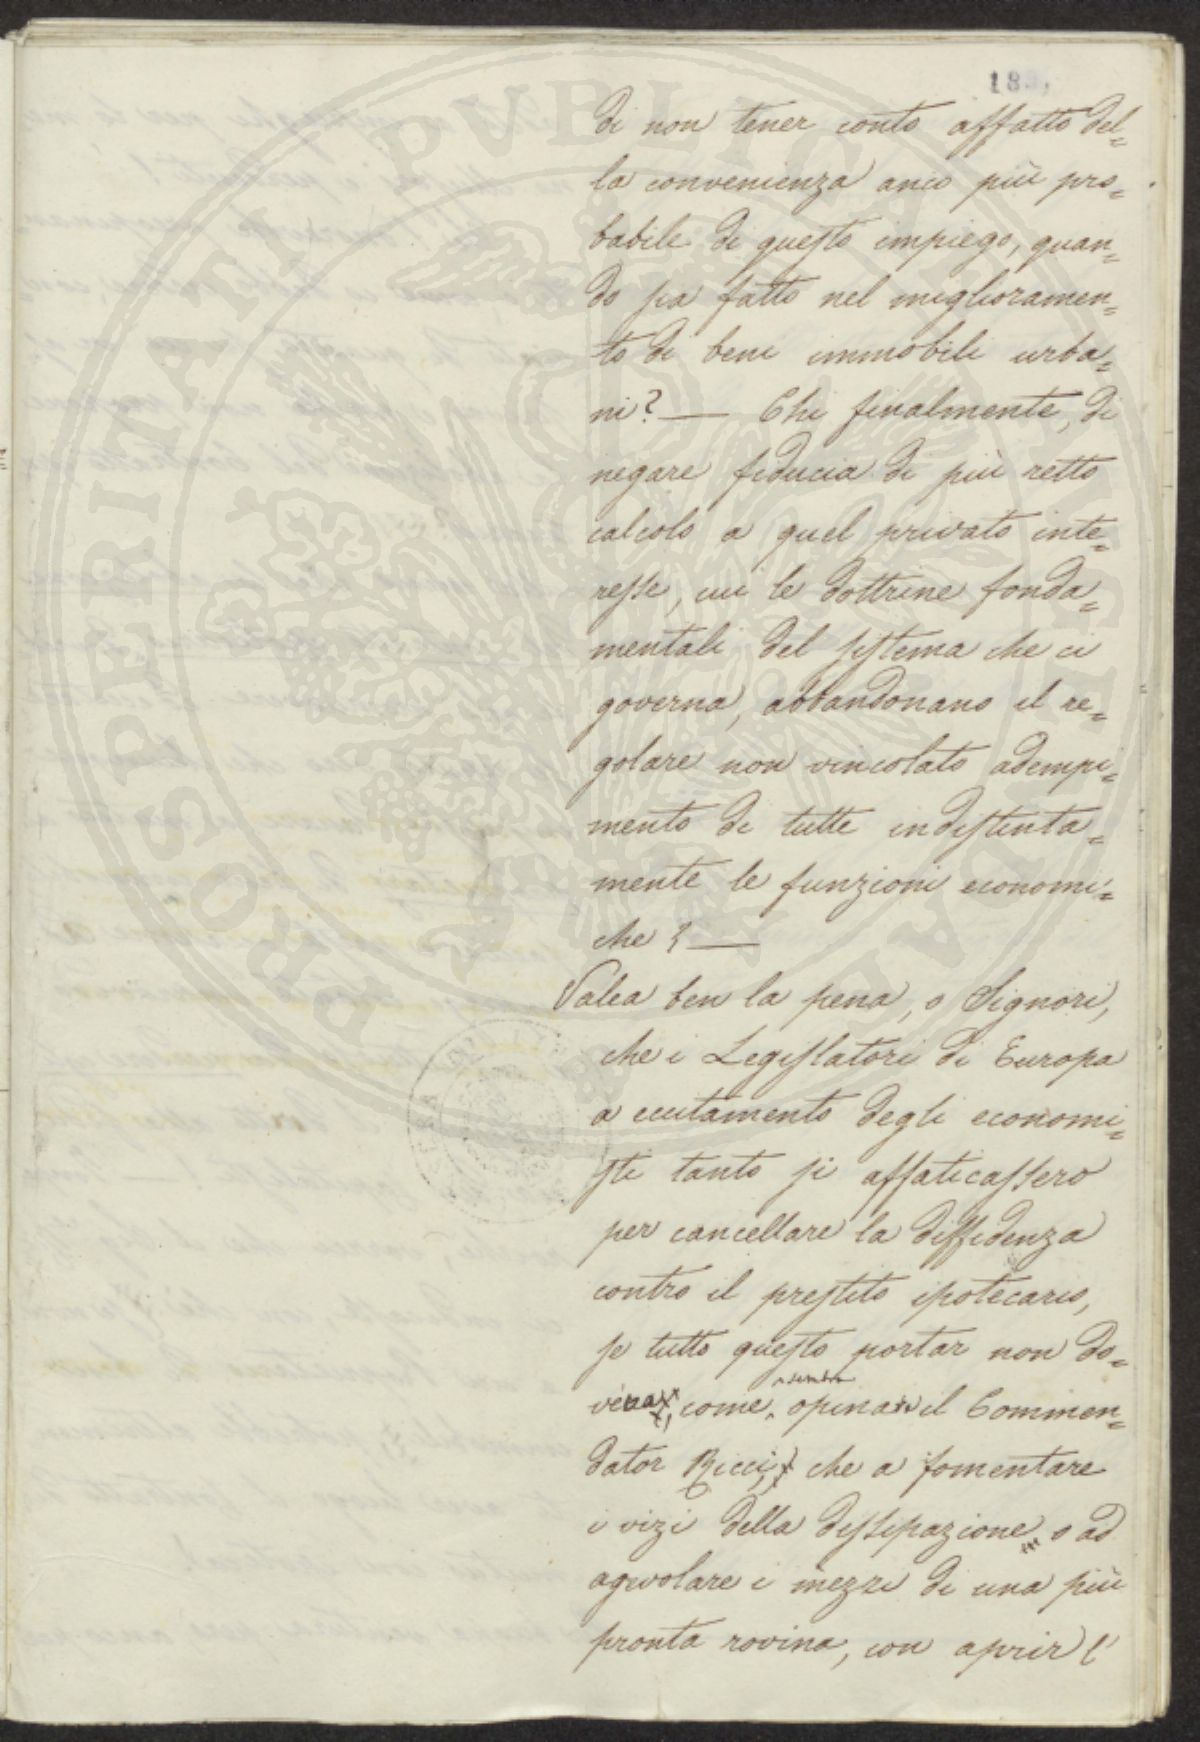 183,
di non tener conto affatto del=
la convenienza anco più pro=
babile di questo impiego, quan=
do sia fatto nel miglioramen=
to di beni immobili urba=
ni? — Chi finalmente, di
negare fiducia di più retto
calcolo a quel privato inte=
resse, cui le dottrine fonda=
mentali del sistema che ci
governa, abbandonano il re=
golare non vincolato adempi=
mento di tutte indistinta=
mente le funzioni economi=
che? —
Valea ben la pena, o Signori,
che i Legislatori di Europa
a eccitamento degli economi=
sti tanto si affaticassero
per cancellare la diffidenza
contro il prestito ipotecario,
se tutto questo portar non do=
vea, come opina il Commen=
dator Ricci, che a fomentare
i vizi della dissipazione, o ad
agevolare i mezzi di una più
pronta rovina, con aprir l'
PROSPERITATI PVBLICAE AVGENDAE